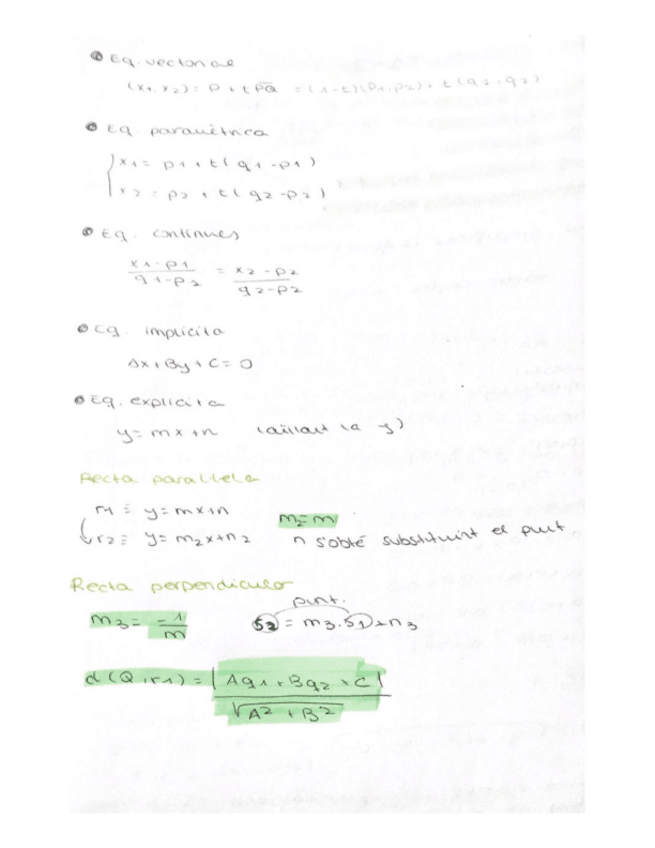 Eq. vectorial
(x1, x2) = P + t PQ = (1-t)(p1, p2) + t(q1, q2)
Eq. paramètrica
x1 = p1 + t(q1 - p1)
x2 = p2 + t(q2 - p2)
Eq. contínues
x1 - p1 / q1 - p2 = x2 - p2 / q2 - p2
Eq. implícita
Ax + By + C = 0
Eq. explícita
y = mx + n (aïllant la y)
Recta paral·lela
r1 ≡ y = mx + n
m2 = m
r2 ≡ y = m2x + n2 n s'obté substituint el punt.
Recta perpendicular
punt.
m3 = -1 / m
s2 = m3 · s1 + n3
d(Q, r1) = |Aq1 + Bq2 + C| / √A² + B²